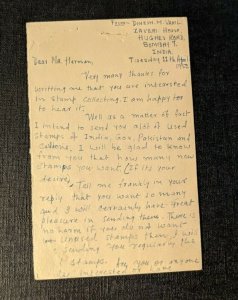 From - Dinesh M. Vakil
Zaveri House,
Hughes Road,
Bombay 7.
India.
Tuesday 12th Apr
Dear Mr. Herman,
Very many thanks for
writing me that you are interested
in stamp collecting, I am happy too
to hear it.
Well as a matter of fact
I intend to send you alot of used
stamps in India, Goa, Pakistan and
Ceylone, I will be glad to know
from you that how many new
stamps you want (If its your
desire,
Tell me frankly in your
reply that you want so many
and I will certainly have great
pleasure in sending them. There is
no harm if you do not want
unused stamps then, I will
sending you regularly the
stamps for you or anyone
interested